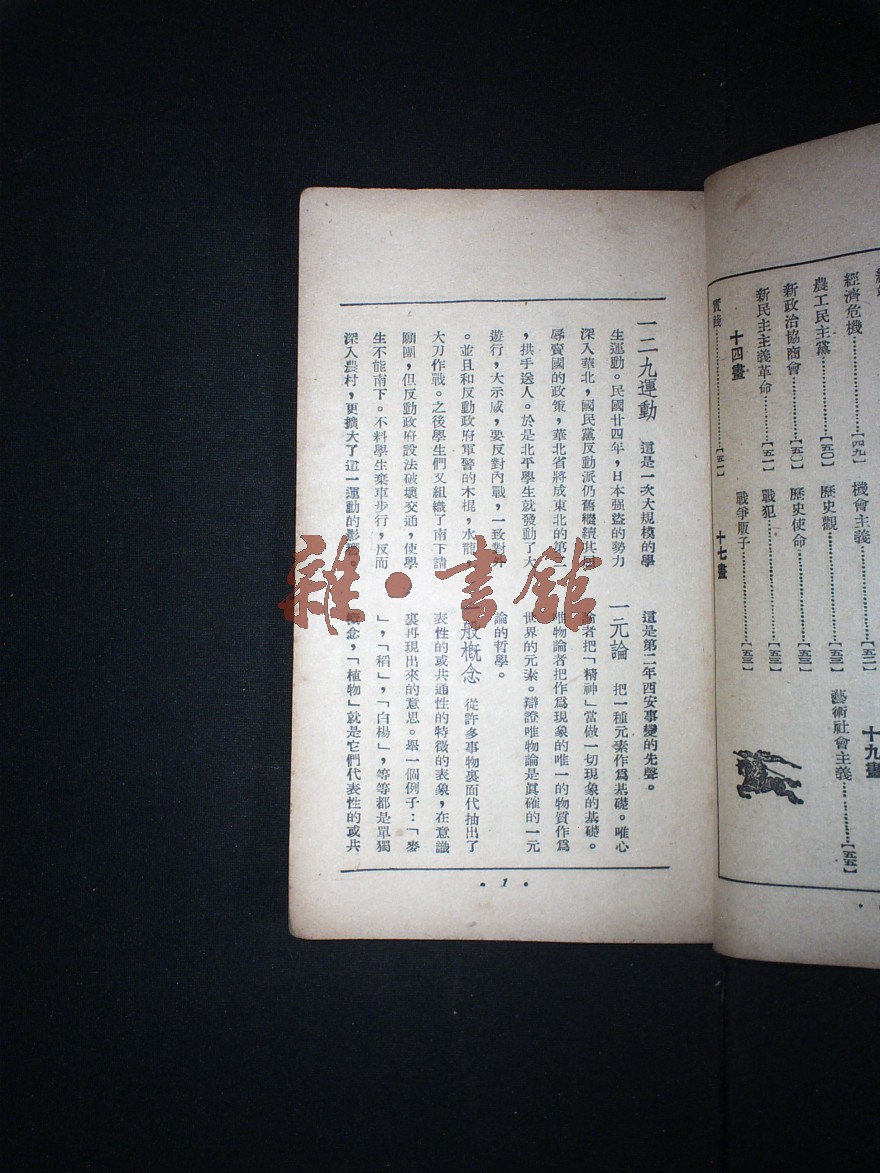 經濟危機…………[四九]
農工民主黨…………[五〇]
新政治協商會…………[五〇]
新民主主義革命…………[五一]
十四畫
實踐…………[五一]
機會主義…………[五二]
歷史觀…………[五三]
歷史使命…………[五三]
戰犯…………[五三]
戰爭販子…………[五三]
十七畫
十九畫
藝術社會主義…………[五五]
一二九運動　這是一次大規模的學
生運動。民國廿四年，日本强盜的勢力
深入華北，國民黨反動派仍舊繼續其
辱賣國的政策，華北省將成東北的第二
，拱手送人。於是北平學生就發動了大
遊行，大示威，要反對內戰，一致對外
。並且和反動政府軍警的木棍，水龍，
大刀作戰。之後學生們又組織了南下請
願團，但反動政府設法破壞交通，使學
生不能南下。不料學生棄車步行，反而
深入農村，更擴大了這一運動的影響。
這是第二年西安事變的先聲。
一元論　把一種元素作爲基礎。唯心
論者把「精神」當做一切現象的基礎。
唯物論者把作爲現象的唯一的物質作爲
世界的元素。辯證唯物論是眞確的一元
論的哲學。
一般概念　從許多事物裏面代抽出了
表性的或共通性的特徵的表象，在意識
裏再現出來的意思。舉一個例子：「麥
」，「稻」，「白楊」，等等都是單獨
概念，「植物」就是它們代表性的或共
• 1 •
雜•書館